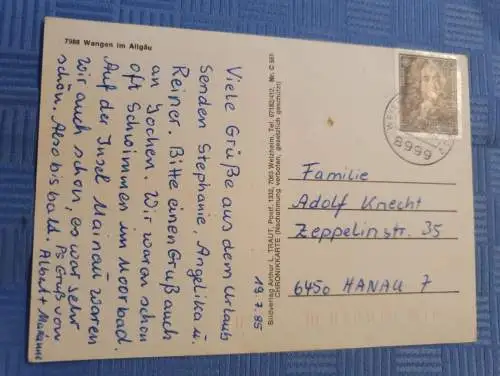 7988 Wangen im Allgäu
Viele Grüße aus dem Urlaub
senden Stephanie, Angelika u.
Reiner. Bitte einen Gruß auch
an Jochen. Wir waren schon
oft Schwimmen im Moorbad.
Auf der Insel Mainau waren
wir auch schon, es war sehr
schön. Also bis bald.
PS Gruß von
Albert + Marianne
19.7.85
Bildverlag Arthur L. TRAUT, Postf.
CHRONIKKARTE (Nachahmung verboten, gesetzlich geschützt)
8999
Familie
Adolf Knecht
Zeppelinstr. 35
6450 HANAU 7